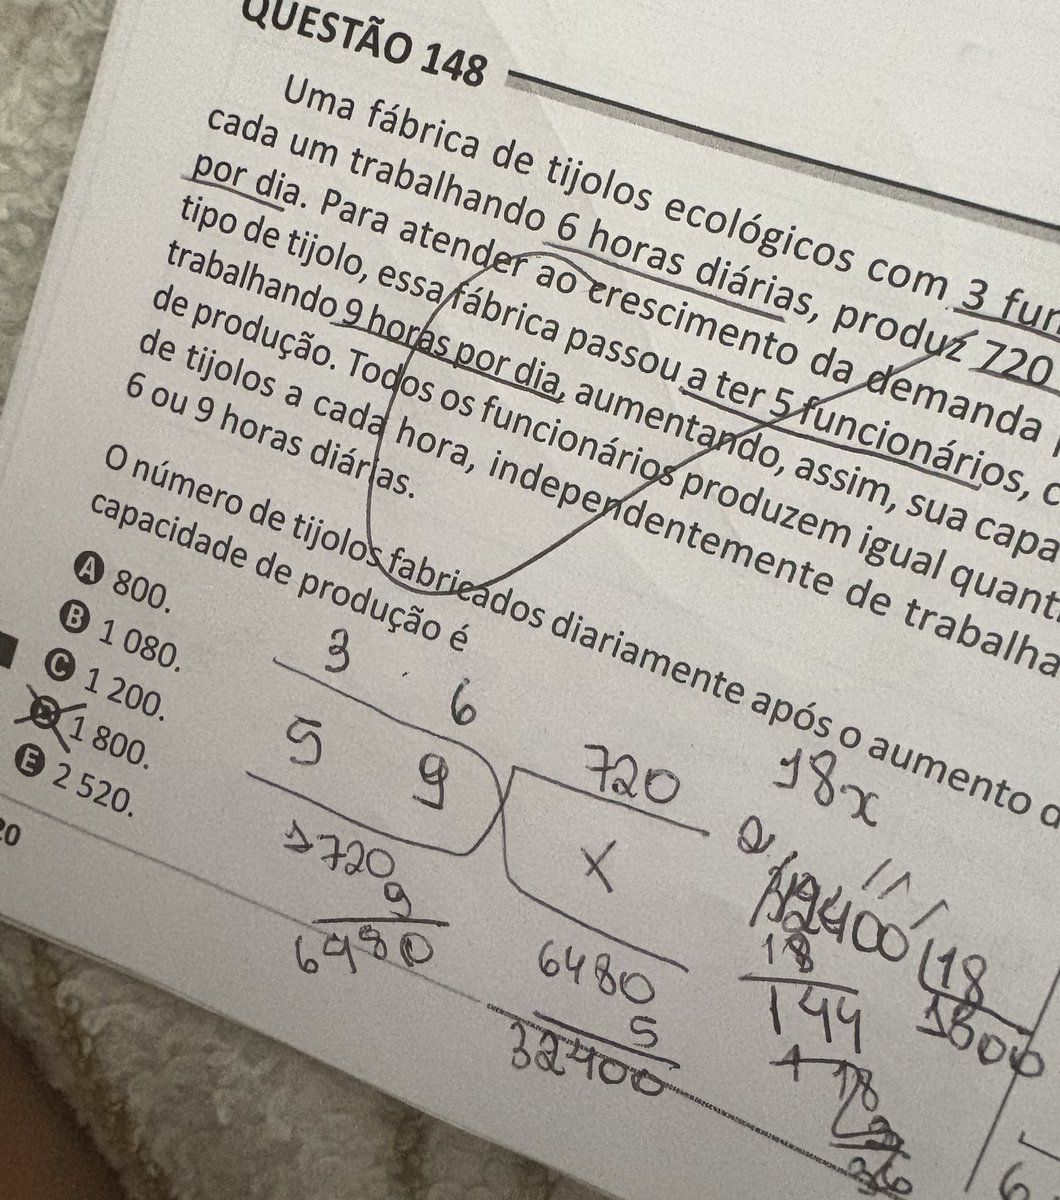 QUESTÃO 148
Uma fábrica de tijolos ecológicos com 3
cada um trabalhando 6 horas diárias, produz 720
por dia. Para atender ao crescimento da demanda
tipo de tijolo, essa fábrica passou a ter 5 funcionários,
trabalhando 9 horas por dia, aumentando, assim, sua
de produção. Todos os funcionários produzem igual
de tijolos a cada hora, independentemente de
6 ou 9 horas diárias.
O número de tijolos fabricados diariamente após o aumento
capacidade de produção é
A 800.
B 1 080.
C 1 200.
D 1 800.
E 2 520.
20
3 . 6
5 9
720
X
18x
720
9
6480
6480
5
32400
32400 18
18 1800
144
6